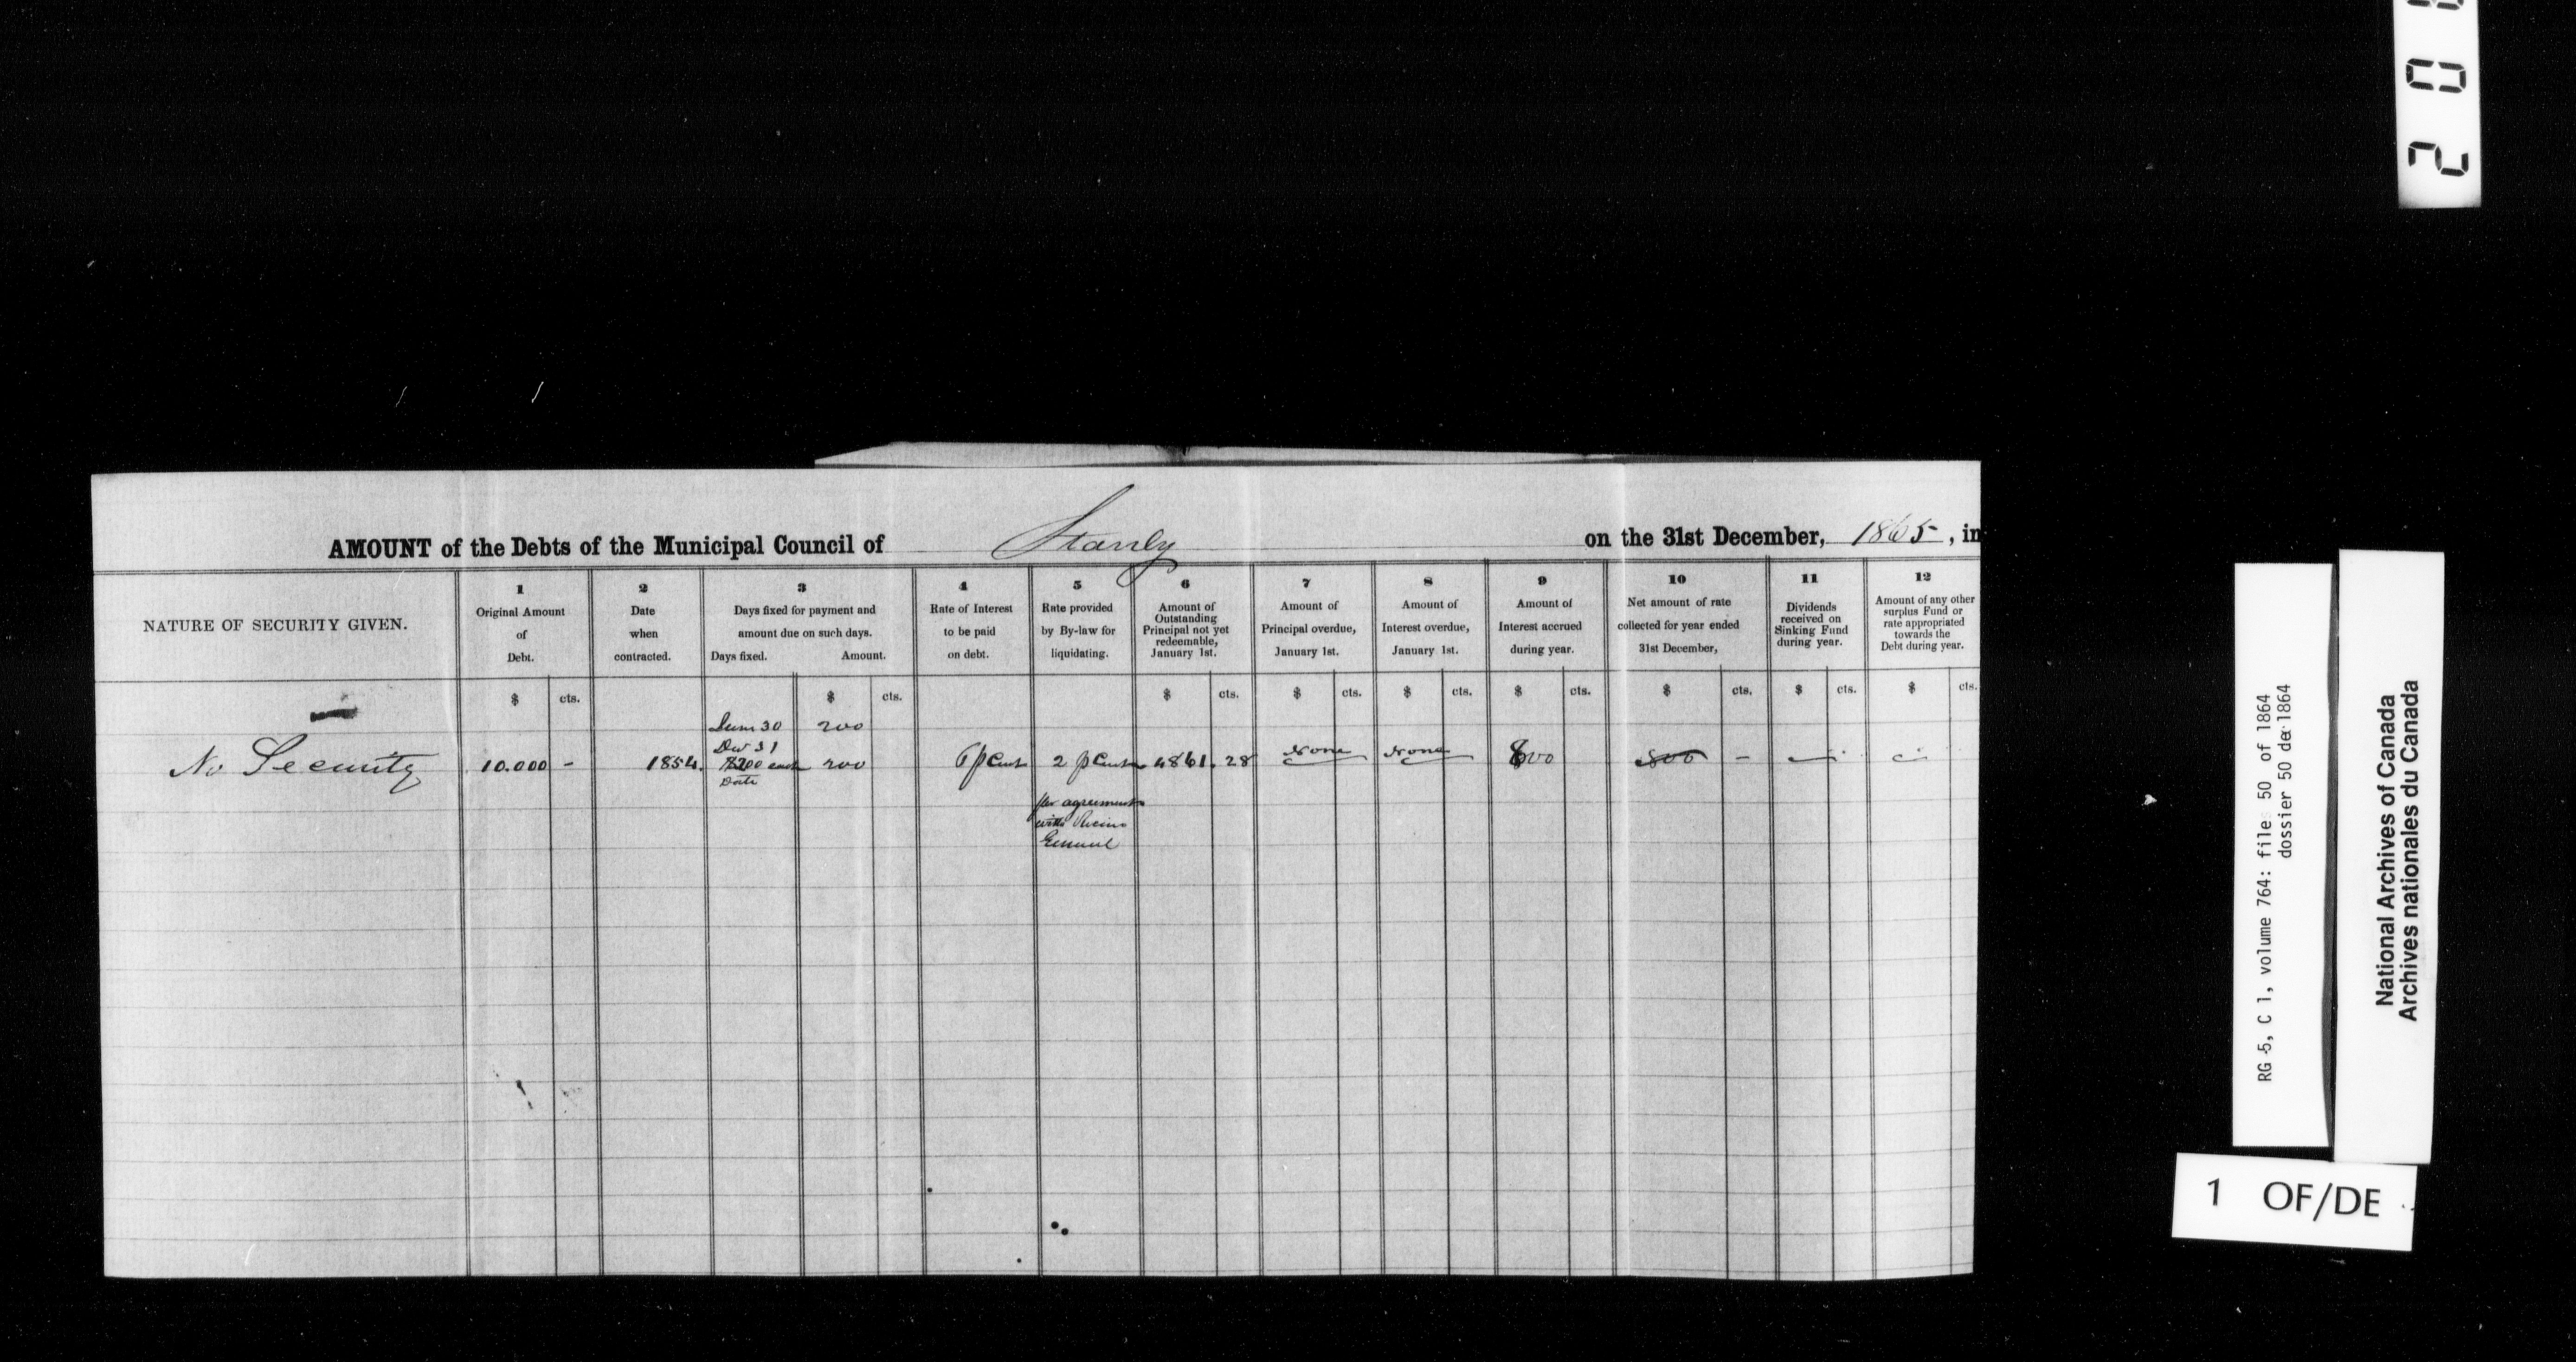 AMOUNT of the Debts of the Municipal Council of Stanly on the 31st December, 1865, in
NATURE OF SECURITY GIVEN.
1
Original Amount
of
Debt.
2
Date
when
contracted.
3
Days fixed for payment and
amount due on such days.
Days fixed. Amount.
4
Rate of Interest
to be paid
on debt.
5
Rate provided
by By-law for
liquidating.
6
Amount of
Outstanding
Principal not yet
redeemable,
January 1st.
7
Amount of
Principal overdue,
January 1st.
8
Amount of
Interest overdue,
January 1st.
9
Amount of
Interest accrued
during year.
10
Net amount of rate
collected for year ended
31st December,
11
Dividends
received on
Sinking Fund
during year.
12
Amount of any other
surplus Fund or
rate appropriated
towards the
Debt during year.
$ cts. $ cts. $ cts. $ cts. $ cts. $ cts. $ cts. $ cts. $ cts.
30 200
31
No Security 10.000 - 1854. each 200 6 p Cent 2 p Cent 4861. 28 None None 600 800 -
Date
per agreement
with
General
2 0
RG 5, C 1, volume 764: files 50 of 1864
dossier 50 de 1864
National Archives of Canada
Archives nationales du Canada
1 OF/DE